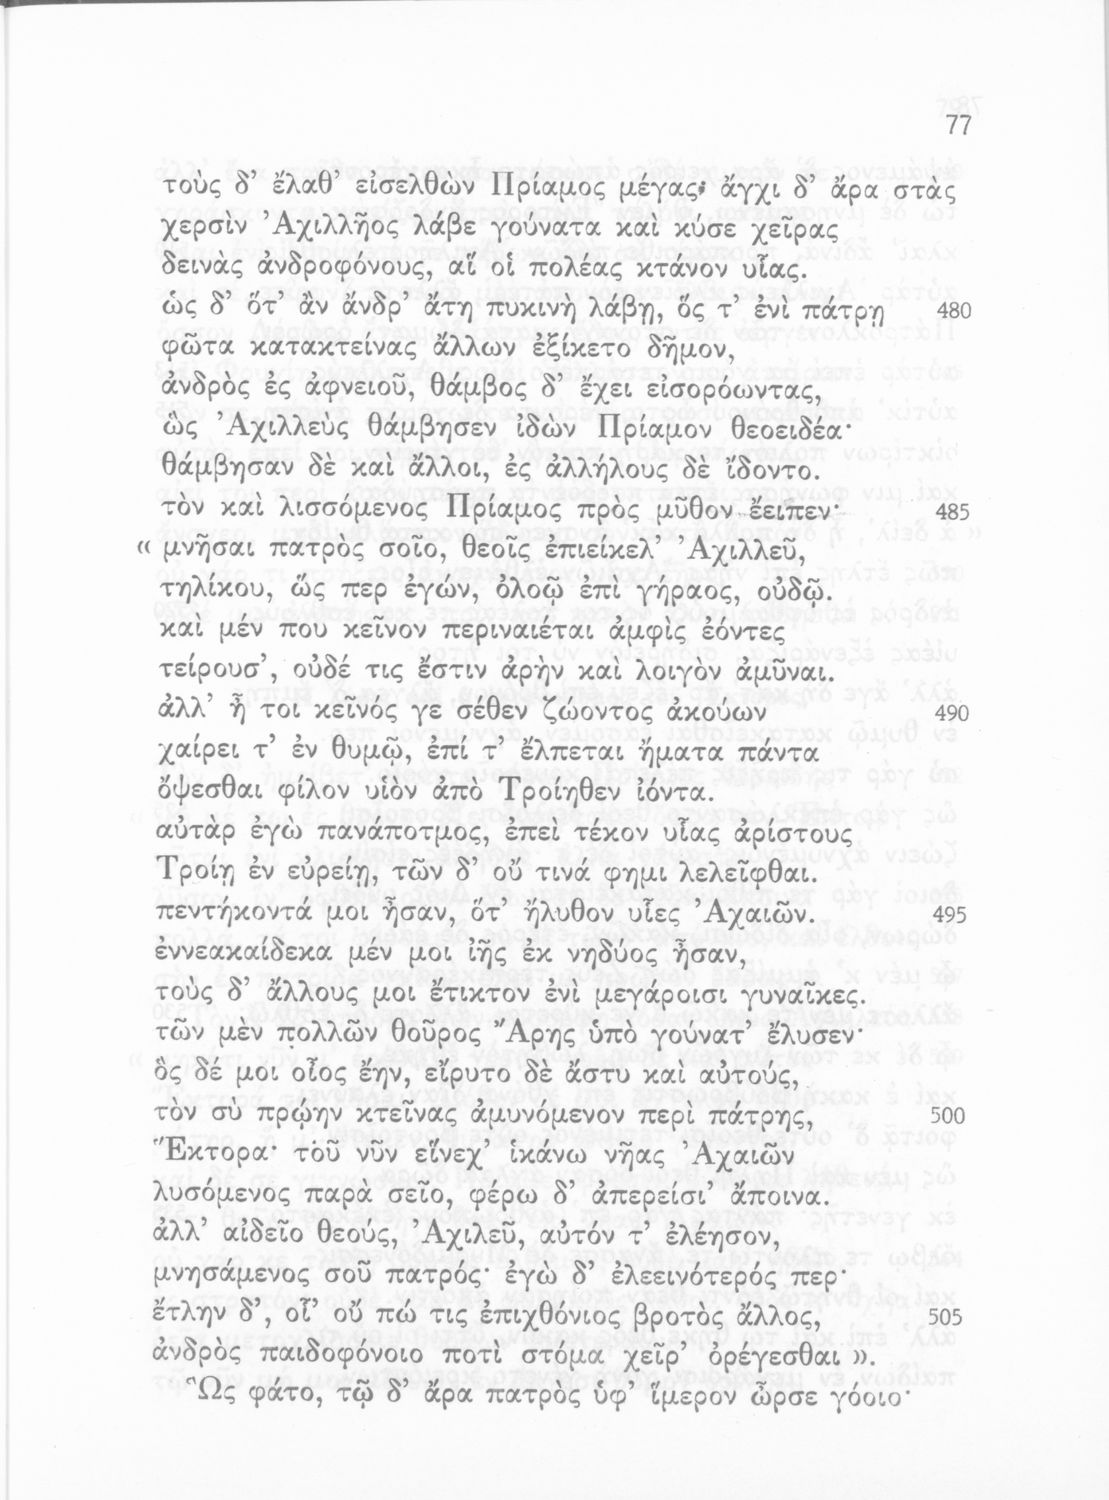 77
τοὺς δ’ ἔλαθ’ εἰσελθὼν Πρίαμος μέγας· ἄγχι δ’ ἄρα στὰς
χερσὶν ’Αχιλλῆος λάβε γούνατα καὶ κύσε χεῖρας
δεινὰς ἀνδροφόνους, αἵ οἱ πολέας κτάνον υἷας.
ὡς δ’ ὅτ’ ἂν ἄνδρ’ ἄτη πυκινὴ λάβῃ, ὅς τ’ ἐνὶ πάτρῃ 480
φῶτα κατακτείνας ἄλλων ἐξίκετο δῆμον,
ἀνδρὸς ἐς ἀφνειοῦ, θάμβος δ’ ἔχει εἰσορόωντας,
ὣς ’Αχιλλεὺς θάμβησεν ἰδὼν Πρίαμον θεοειδέα·
θάμβησαν δὲ καὶ ἄλλοι, ἐς ἀλλήλους δὲ ἴδοντο.
τὸν καὶ λισσόμενος Πρίαμος πρὸς μῦθον ἔειπεν· 485
« μνῆσαι πατρὸς σοῖο, θεοῖς ἐπιείκελ’ ’Αχιλλεῦ,
τηλίκου, ὥς περ ἐγών, ὀλοῷ ἐπὶ γήραος, οὐδῷ.
καὶ μέν που κεῖνον περιναιέται ἀμφὶς ἐόντες
τείρουσ’, οὐδέ τις ἔστιν ἀρὴν καὶ λοιγὸν ἀμῦναι.
ἀλλ’ ἦ τοι κεῖνός γε σέθεν ζώοντος ἀκούων 490
χαίρει τ’ ἐν θυμῷ, ἐπί τ’ ἔλπεται ἤματα πάντα
ὄψεσθαι φίλον υἱὸν ἀπὸ Τροίηθεν ἰόντα.
αὐτὰρ ἐγὼ πανάποτμος, ἐπεὶ τέκον υἷας ἀρίστους
Τροίῃ ἐν εὐρείῃ, τῶν δ’ οὔ τινά φημι λελεῖφθαι.
πεντήκοντά μοι ἦσαν, ὅτ’ ἤλυθον υἷες ’Αχαιῶν. 495
ἐννεακαίδεκα μέν μοι ἰῆς ἐκ νηδύος ἦσαν,
τοὺς δ’ ἄλλους μοι ἔτικτον ἐνὶ μεγάροισι γυναῖκες.
τῶν μὲν πολλῶν θοῦρος ῎Αρης ὑπὸ γούνατ’ ἔλυσεν·
ὃς δέ μοι οἶος ἔην, εἴρυτο δὲ ἄστυ καὶ αὐτούς,
τὸν σὺ πρῴην κτεῖνας ἀμυνόμενον περὶ πάτρης, 500
῞Εκτορα· τοῦ νῦν εἵνεχ’ ἱκάνω νῆας ’Αχαιῶν
λυσόμενος παρὰ σεῖο, φέρω δ’ ἀπερείσι’ ἄποινα.
ἀλλ’ αἰδεῖο θεούς, ’Αχιλεῦ, αὐτόν τ’ ἐλέησον,
μνησάμενος σοῦ πατρός· ἐγὼ δ’ ἐλεεινότερός περ·
ἔτλην δ’, οἷ’ οὔ πώ τις ἐπιχθόνιος βροτὸς ἄλλος, 505
ἀνδρὸς παιδοφόνοιο ποτὶ στόμα χεῖρ’ ὀρέγεσθαι ».
῝Ως φάτο, τῷ δ’ ἄρα πατρὸς ὑφ’ ἵμερον ὦρσε γόοιο·